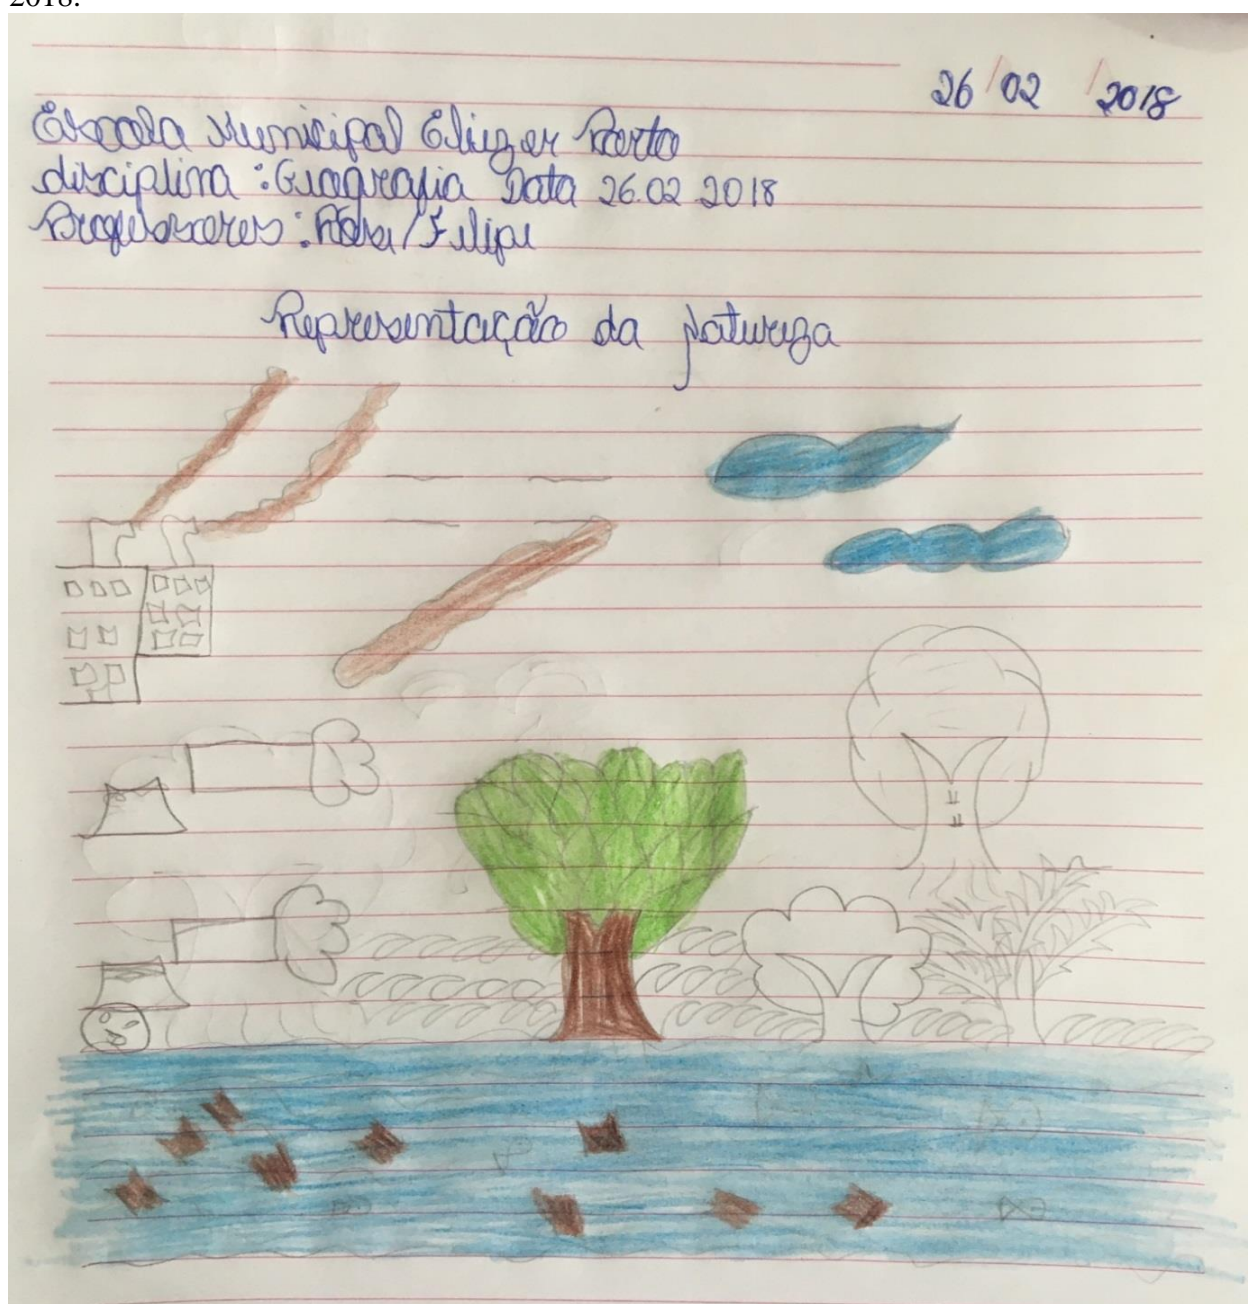 2018.
26/02/2018
Escola Municipal Eliezer Porto
disciplina: Geografia Data 26.02 2018
Professores: / Filipe
Representação da Natureza